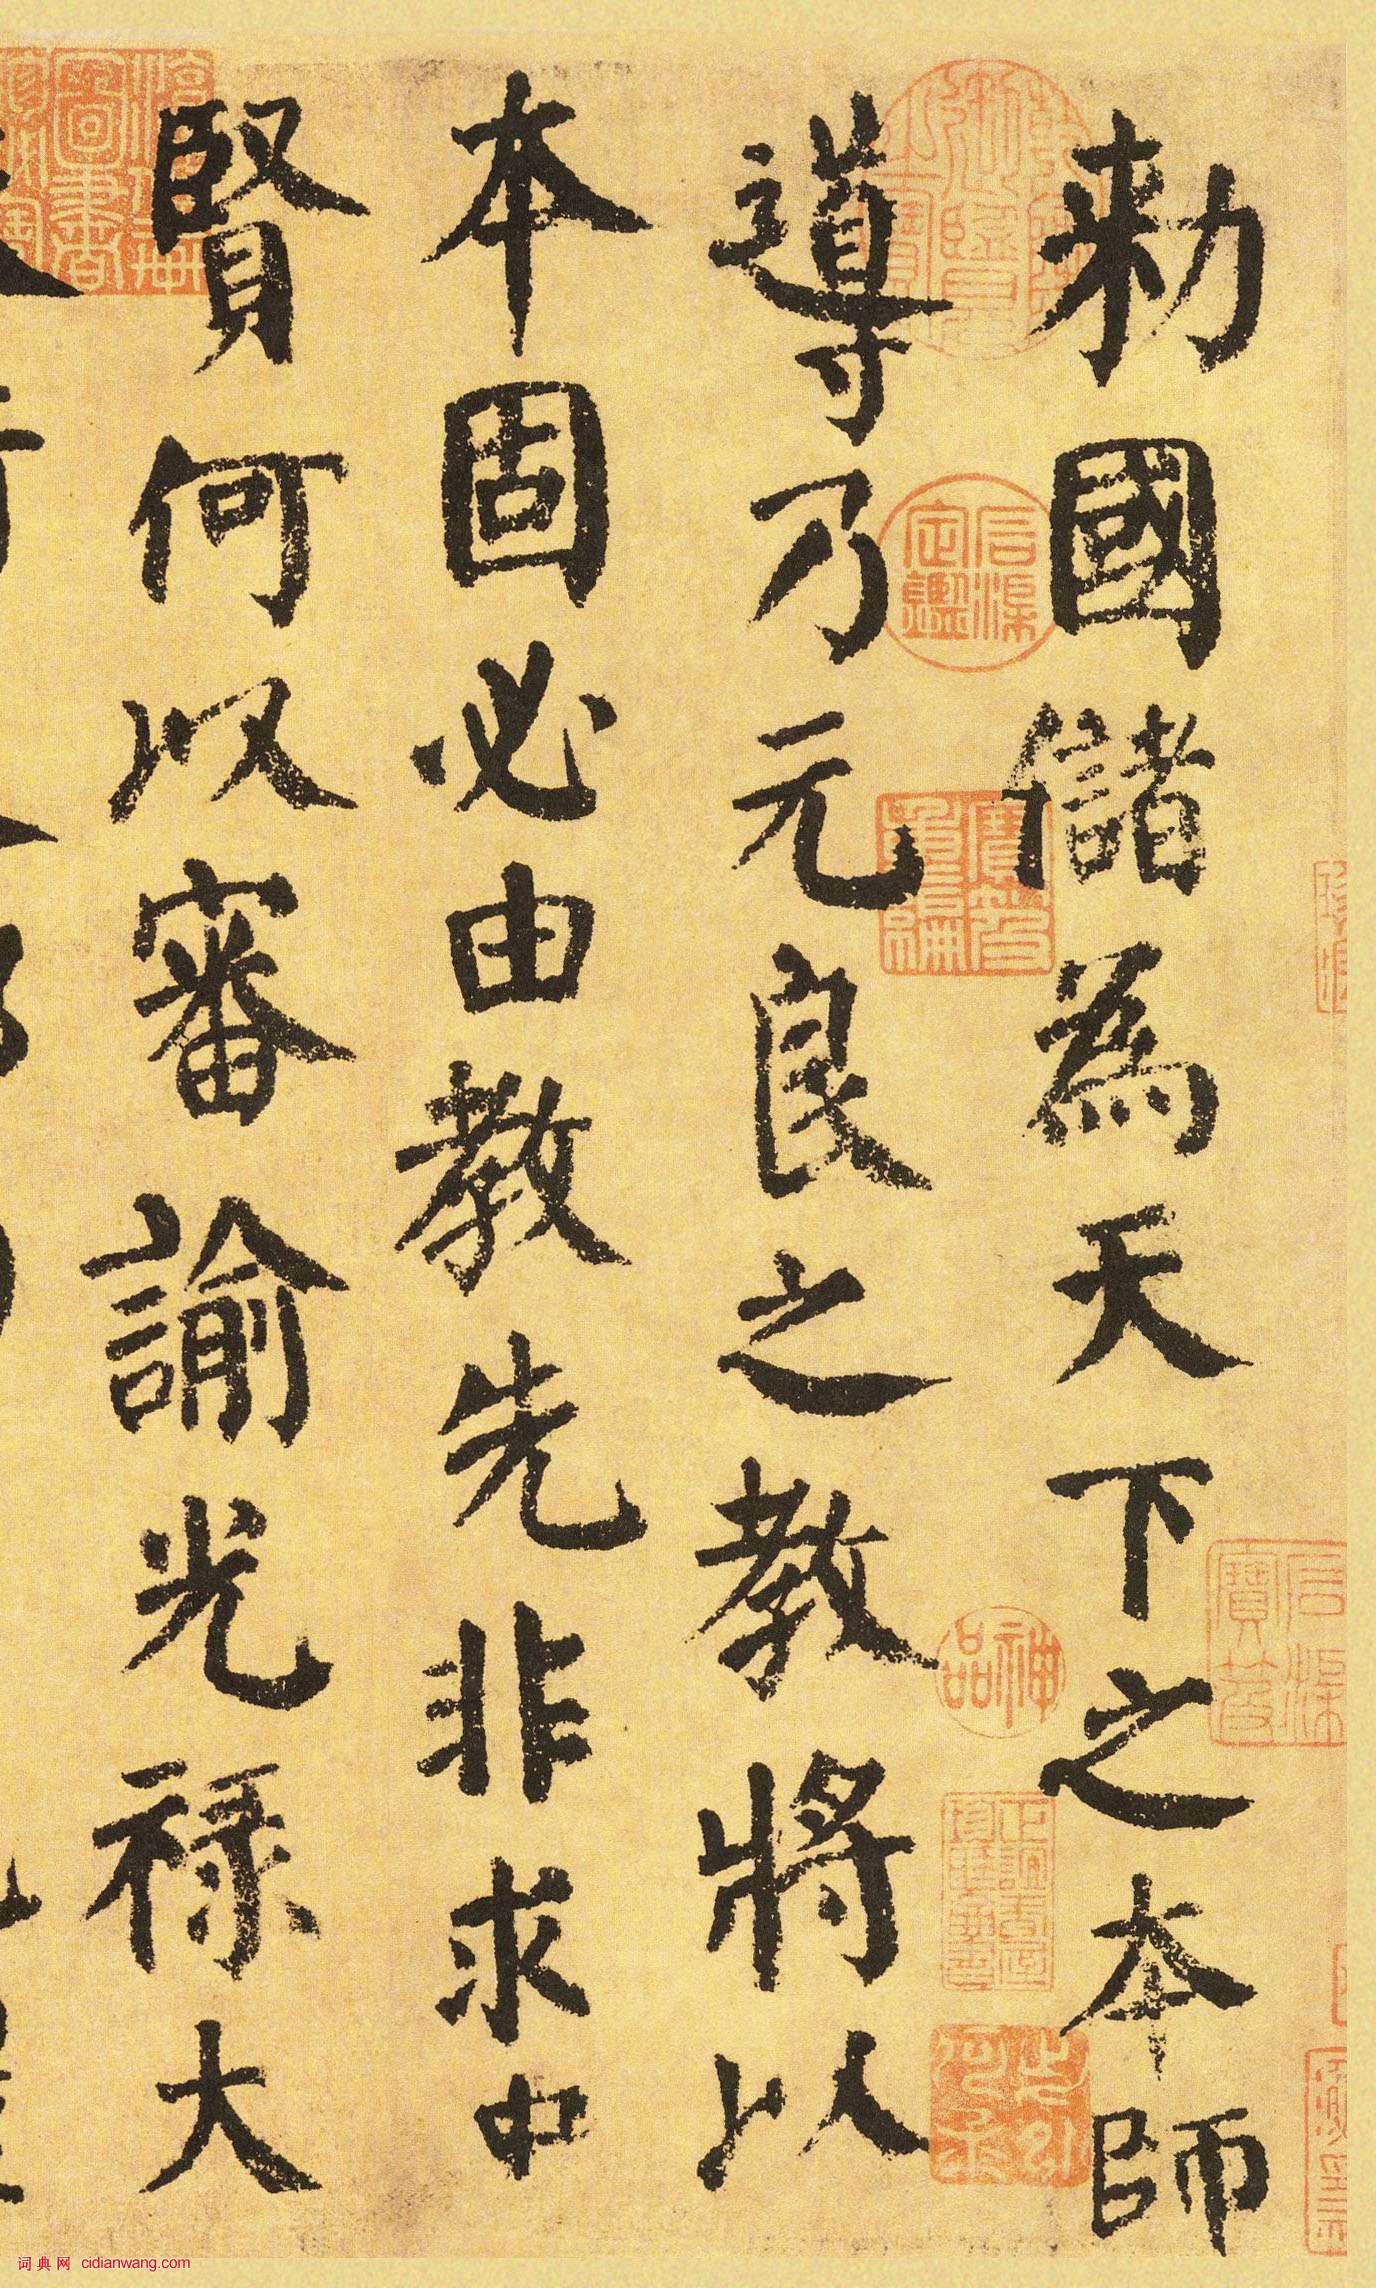 勑國儲為天下之本師
導乃元良之教將以
本固必由教先非求中
賢何以審諭光祿大
神品
詞典网 cidianwang.com